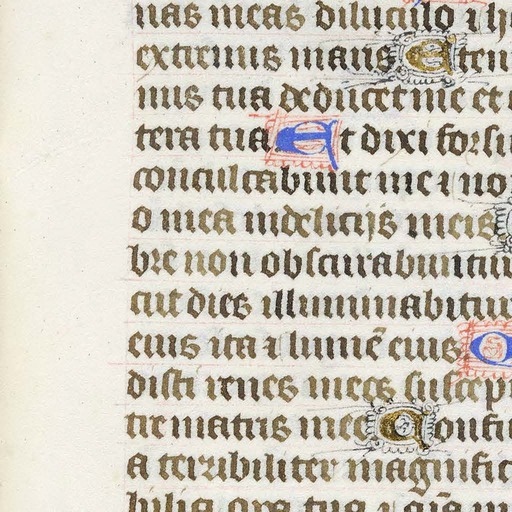 nas meas diluculo ⁊ h
extremis maris Eten
nus tua deducet me et
tera tua Et dixi forsi
conculcabunt me ⁊ no
o mea in delicijs meis
bre non obscurabuntur
cut dies illuminabitur
eius ita ⁊ lumē eius
disti renes meos suscep
tre matris mee Confi
a terribiliter magnific
bilia opa tua ⁊